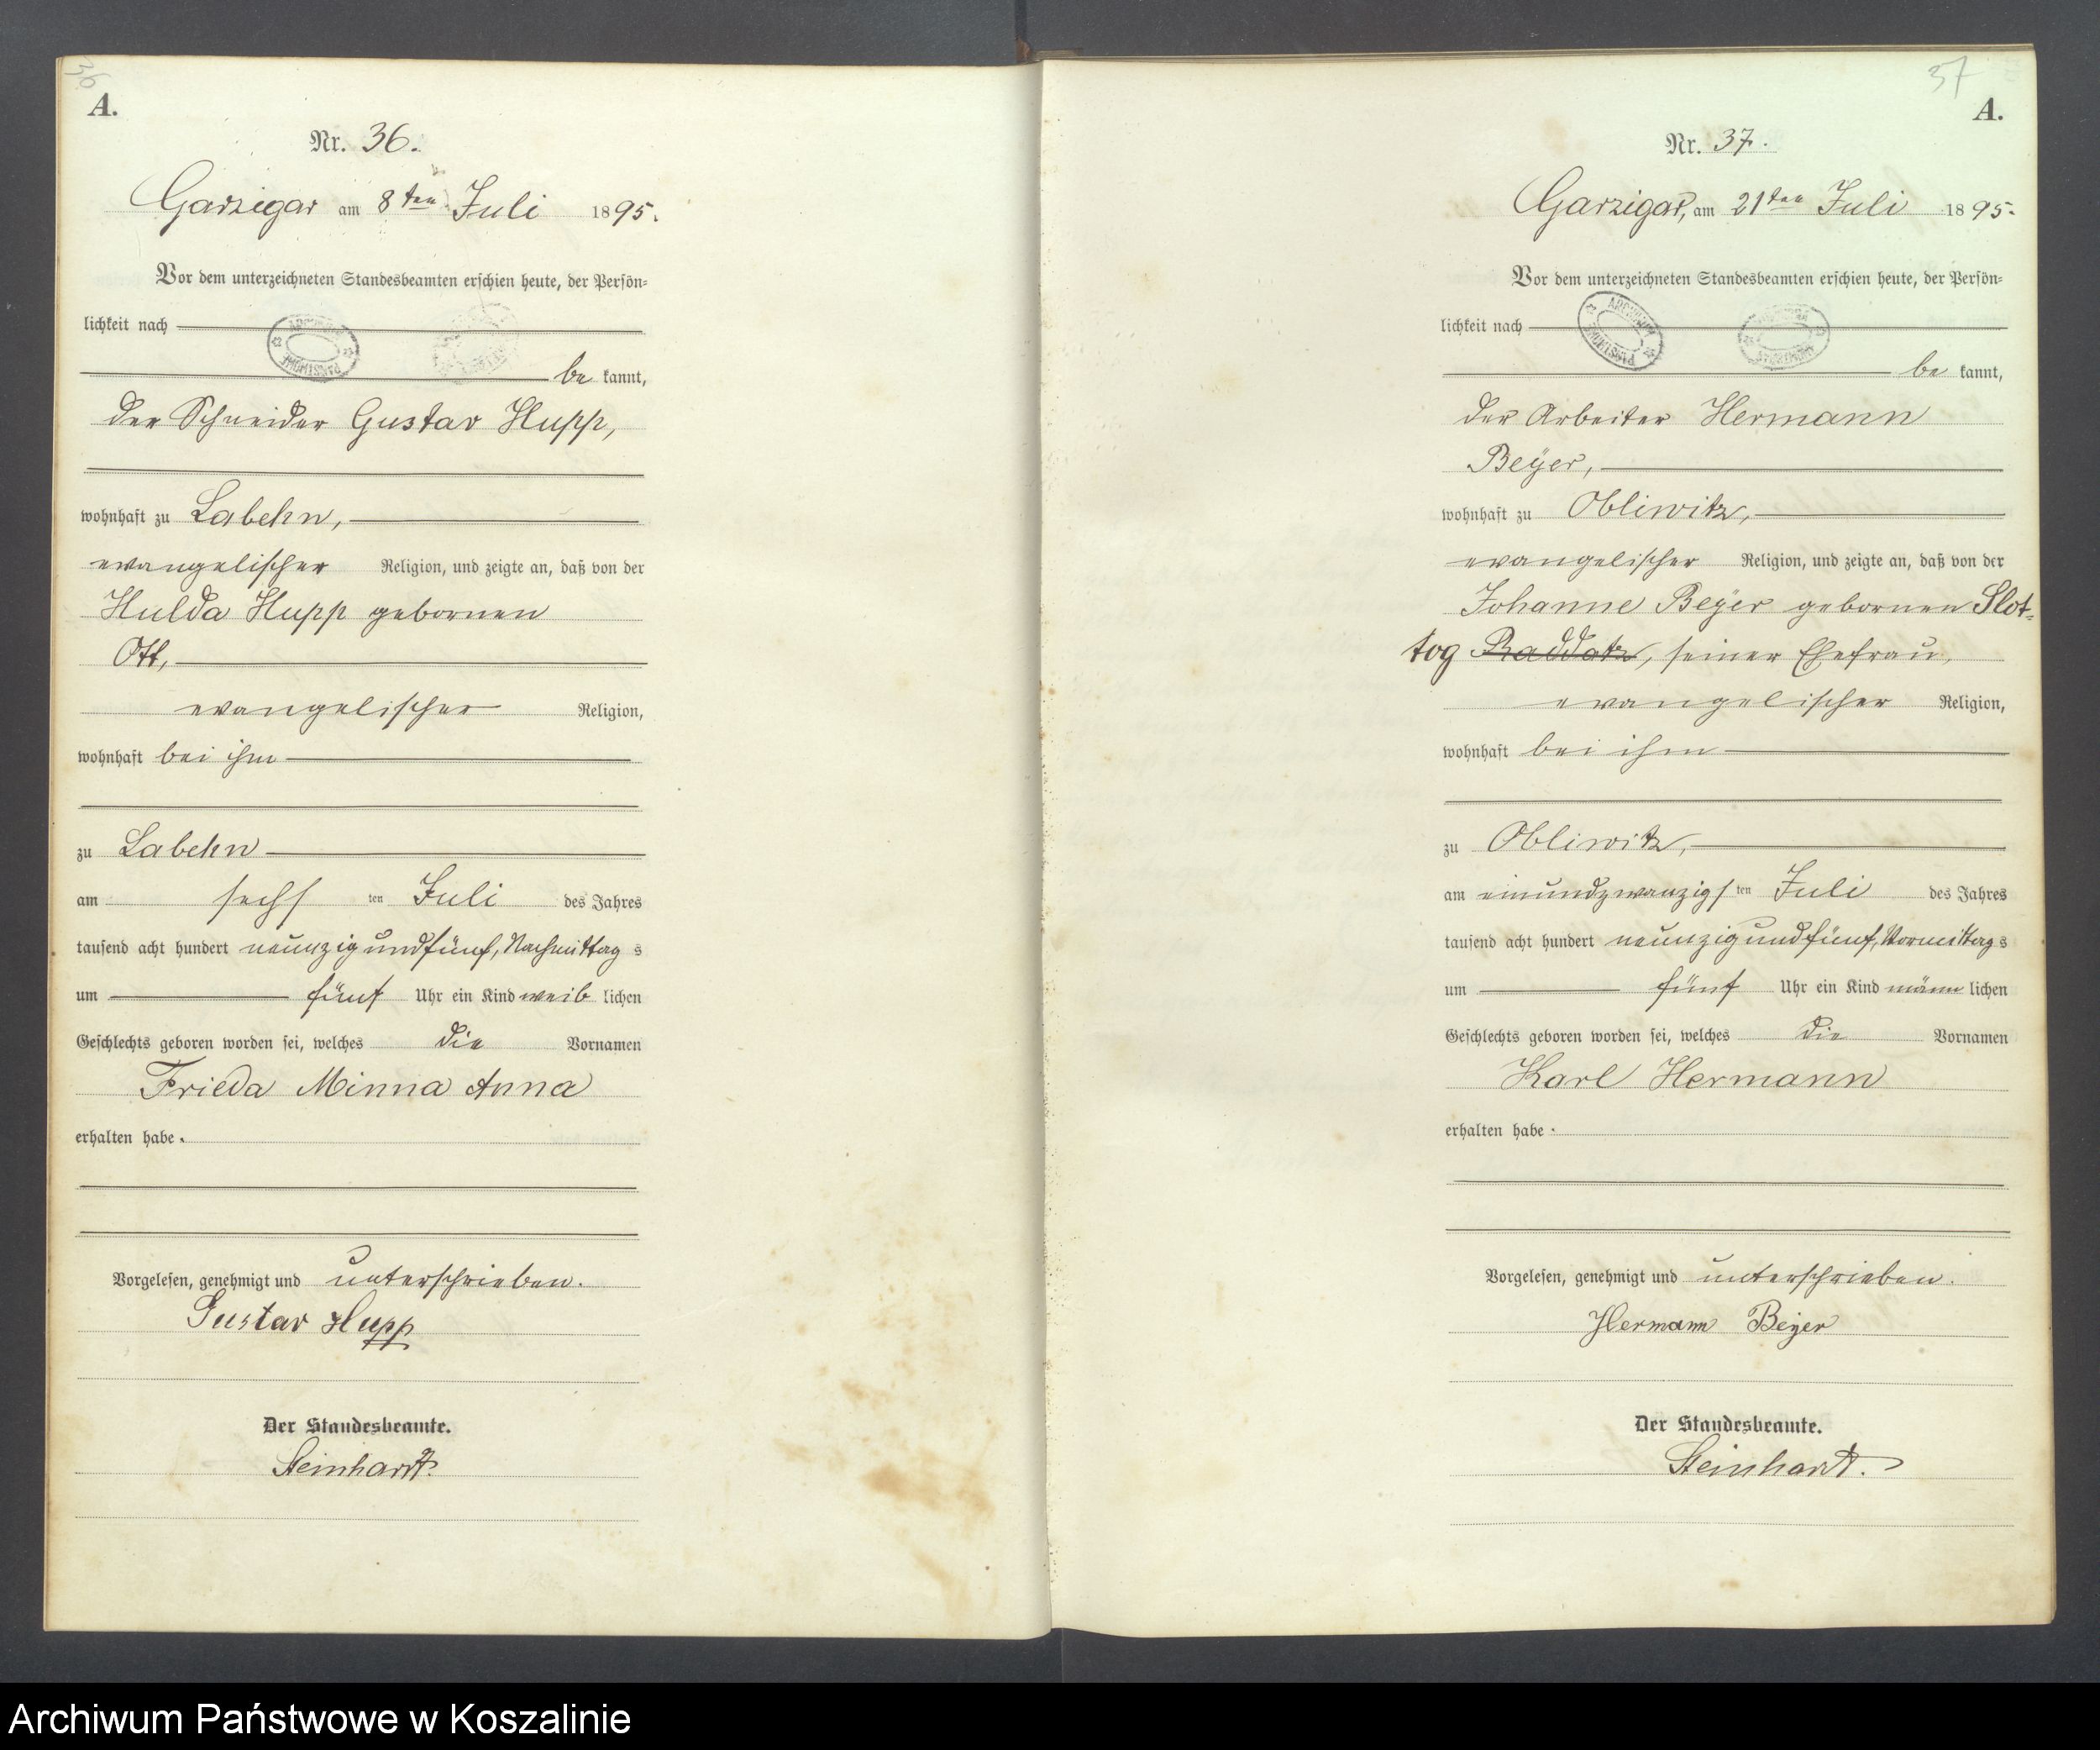 36
A.
Nr. 36.
Garzigar am 8ten Juli 1895.
Vor dem unterzeichneten Standesbeamten erschien heute, der Persön-
lichkeit nach
be kannt,
der Schneider Gustav Hupp,
wohnhaft zu Labehn,
evangelischer Religion, und zeigte an, daß von der
Hulda Hupp gebornen
Ott,
evangelischer Religion,
wohnhaft bei ihm
zu Labehn
am sechs ten Juli des Jahres
tausend acht hundert neunzig und fünf, Nachmittag s
um fünf Uhr ein Kind weib lichen
Geschlechts geboren worden sei, welches die Vornamen
Frieda Minna Anna
erhalten habe.
Vorgelesen, genehmigt und unterschrieben.
Gustav Hupp
Der Standesbeamte.
Steinhardt.
37
A.
Nr. 37.
Garzigar, am 21ten Juli 1895.
Vor dem unterzeichneten Standesbeamten erschien heute, der Persön-
lichkeit nach
be kannt,
der Arbeiter Hermann
Beyer,
wohnhaft zu Obliwitz,
evangelischer Religion, und zeigte an, daß von der
Johanne Beyer gebornen Slot-
tog Raddatz, seiner Ehefrau,
evangelischer Religion,
wohnhaft bei ihm
zu Obliwitz,
am einundzwanzigs ten Juli des Jahres
tausend acht hundert neunzig und fünf, Vormittag s
um fünf Uhr ein Kind männ lichen
Geschlechts geboren worden sei, welches die Vornamen
Karl Hermann
erhalten habe.
Vorgelesen, genehmigt und unterschrieben.
Hermann Beyer
Der Standesbeamte.
Steinhardt.
Archiwum Państwowe w Koszalinie